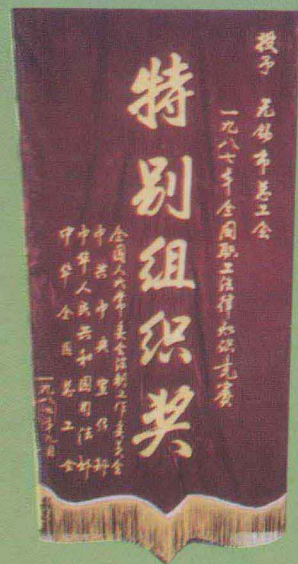 授予 无锡市总工会
一九八七年全国职工法律知识竞赛
特别组织奖
全国人大常委会法制工作委员会
中共中央宣传部
中华人民共和国司法部
中华全国总工会
一九八七年九月